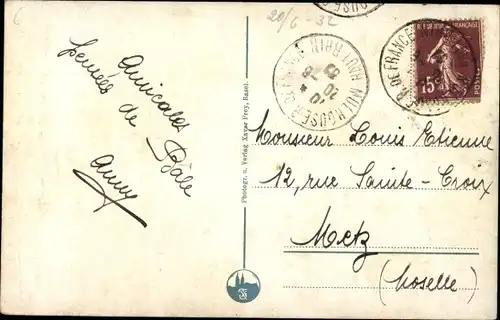 6
20/6-32
Amicales
pensées de
Bâle
Anny
Photogr. u. Verlag Xaver Frey, Basel.
MULHOUSE R. DE FRANCE HAUT RHIN
R. DE FRANCE
15
Monsieur Louis Etienne
12, rue Sainte-Croix
Metz
(Moselle)